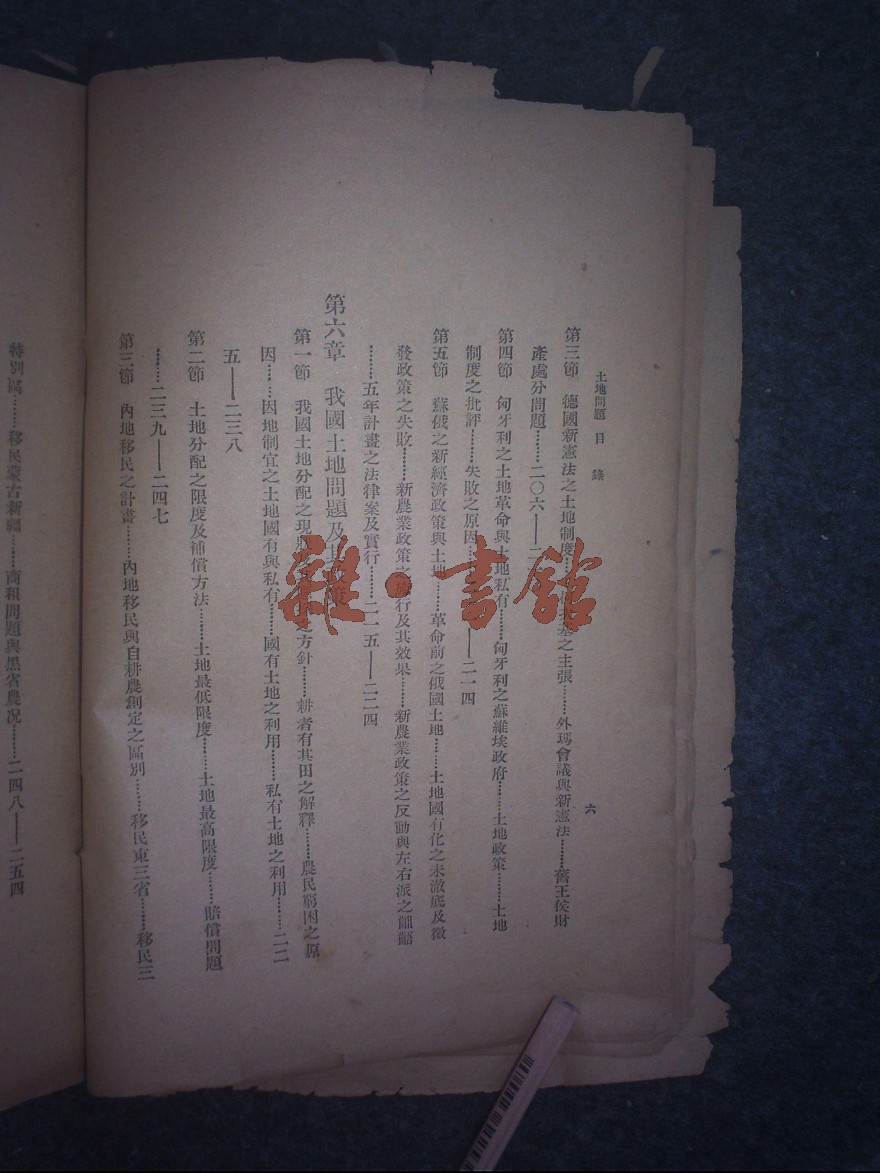 土地問題 目錄
六
第三節 德國新憲法之土地制度……之主張……外瑪會議與新憲法……舊王侯財
產處分問題……二〇六——二
第四節 匈牙利之土地革命與土地私有……匈牙利之蘇維埃政府……土地政策……土地
制度之批評……失敗之原因……——二一四
第五節 蘇俄之新經濟政策與土地……革命前之俄國土地……土地國有化之未澈底及徵
發政策之失敗……新農業政策之施行及其效果……新農業政策之反動與左右派之齟齬
……五年計畫之法律案及實行……二一五——二二四
第六章 我國土地問題及其政策
第一節 我國土地分配之現狀之方針……耕者有其田之解釋……農民窮困之原
因……因地制宜之土地國有與私有……國有土地之利用……私有土地之利用……二二
五——二三八
第二節 土地分配之限度及補償方法……土地最低限度……土地最高限度……賠償問題
……二三九——二四七
第三節 內地移民之計畫……內地移民與自耕農創定之區別……移民東三省……移民三
特別區……移民蒙古新疆……商租問題與黑省農况……二四八——二五四
雜·書館